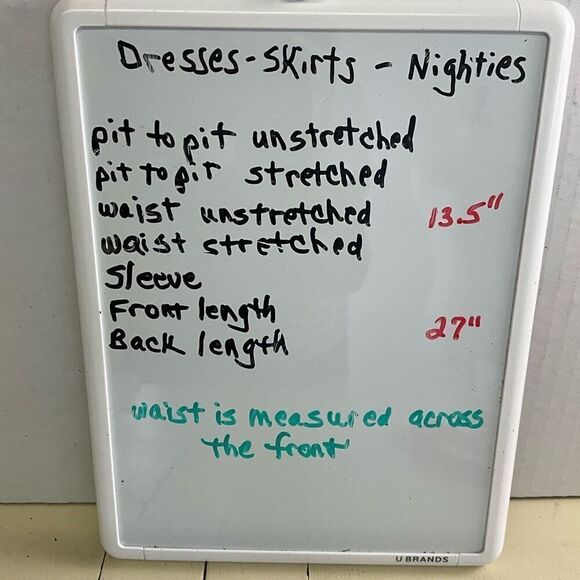 Dresses - Skirts - Nighties
pit to pit unstretched
pit to pit stretched
waist unstretched 13.5"
waist stretched
Sleeve
Front length
Back length 27"
waist is measured across
the front
U BRANDS